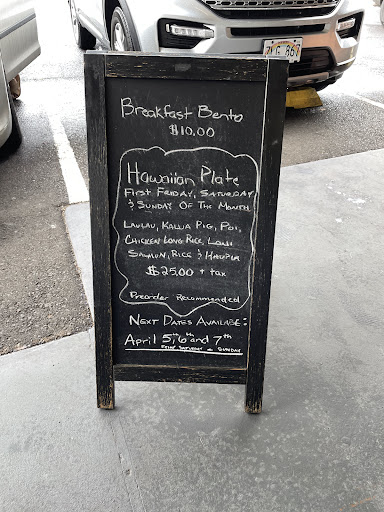 Breakfast Bento
$10.00
Hawaiian Plate
First Friday, Saturday
& Sunday Of The Month
Laulau, Kalua Pig, Poi,
Chicken Long Rice, Lomi
Salmon, Rice & Haupia
$25.00 + tax
Preorder Recommended
Next Dates Available:
April 5th, 6th and 7th
Friday Saturday & Sunday